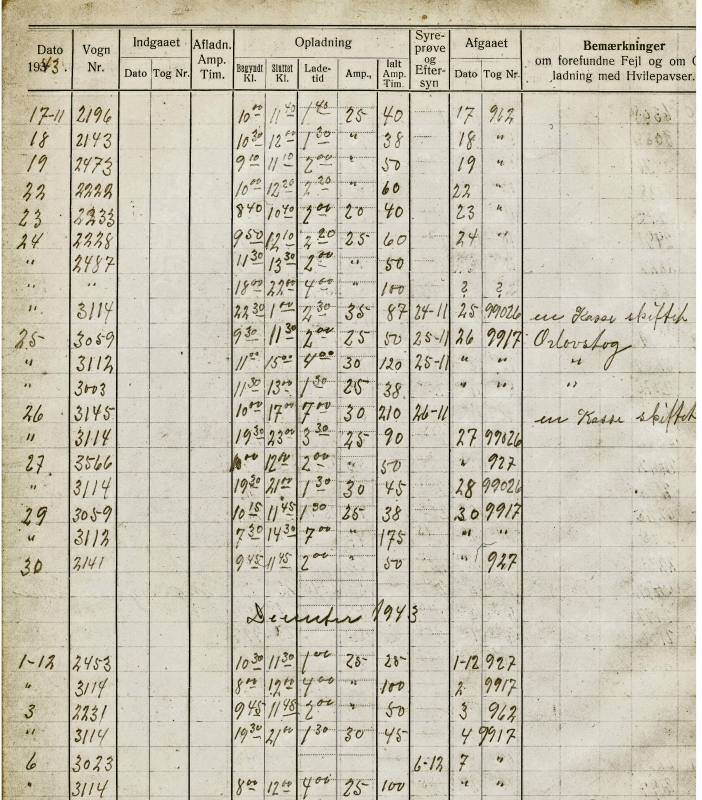 Dato 1943. Vogn Nr. Indgaaet Dato Tog Nr. Afladn. Amp. Tim. Opladning Begyndt Kl. Sluttet Kl. Lade-tid Amp., Ialt Amp. Tim. Syre-prøve og Efter-syn Afgaaet Dato Tog Nr. Bemærkninger om forefundne Fejl og om O ladning med Hvilepavser.
17-11 2196 10 00 11 40 1 40 25 40 17 962
18 2143 10 30 12 00 1 30 " 38 18 "
19 2473 9 10 11 10 2 00 " 50 19 "
22 2222 10 00 12 20 2 20 " 60 22 "
23 2233 8 40 10 40 2 00 20 40 23 "
24 2228 9 50 12 10 2 20 25 60 24 "
" 2487 11 30 13 30 2 00 " 50
" " 18 00 22 00 4 00 " 100 ? ?
" 3114 22 30 1 00 2 30 35 87 24-11 25 99026 en Kasse skiftet
25 3059 9 30 11 30 2 00 25 50 25-11 26 9917 Orlovstog
" 3112 11 00 15 00 4 00 30 120 25-11 " " "
" 3003 11 30 13 00 1 30 25 38 " " "
26 3145 10 00 17 00 7 00 30 210 26-11 en Kasse skiftet
" 3114 19 30 23 00 3 30 25 90 27 99026
27 3566 12 00 2 00 " 50 " 927
" 3114 19 30 21 00 1 30 30 45 28 99026
29 3059 10 15 11 45 1 30 25 38 30 9917
" 3112 7 30 14 30 7 00 " 175 " "
30 2141 9 45 11 45 2 00 " 50 " 927
December 1943
1-12 2453 10 30 11 30 1 00 25 25 1-12 927
" 3114 8 00 12 00 4 00 " 100 2 9917
3 2231 9 45 11 45 2 00 " 50 3 962
" 3114 19 30 21 00 1 30 30 45 4 9917
6 3023 6-12 7 "
" 3114 8 00 12 00 4 00 25 100